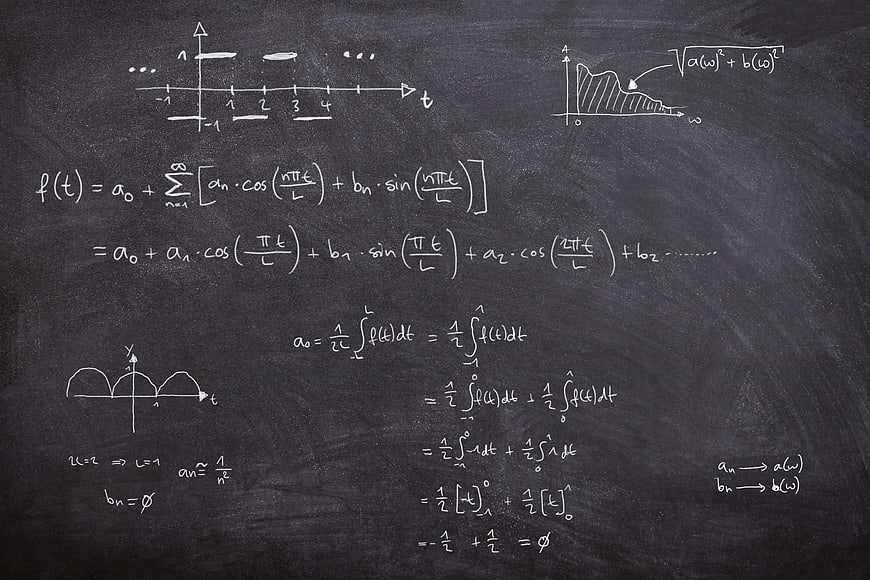 ... 1 ...
-1 1 2 3 4 t
-1
A √(a(ω)² + b(ω)²)
0 ω
f(t) = a₀ + ∑ₙ₌₁^∞ [aₙ·cos(nπt/L) + bₙ·sin(nπt/L)]
= a₀ + a₁·cos(πt/L) + b₁·sin(πt/L) + a₂·cos(2πt/L) + b₂········
a₀ = 1/2L ∫₋L^L f(t)dt = 1/2 ∫₋₁^1 f(t)dt
= 1/2 ∫₋₁^0 f(t)dt + 1/2 ∫₀^1 f(t)dt
= 1/2 ∫₋₁^0 -1dt + 1/2 ∫₀^1 1dt
= 1/2 [-t]₋₁^0 + 1/2 [t]₀^1
= -1/2 + 1/2 = ∅
y
1
1 t
2L=2 ⇒ L=1 aₙ≅ 1/n²
bₙ=∅
aₙ → a(ω)
bₙ → b(ω)